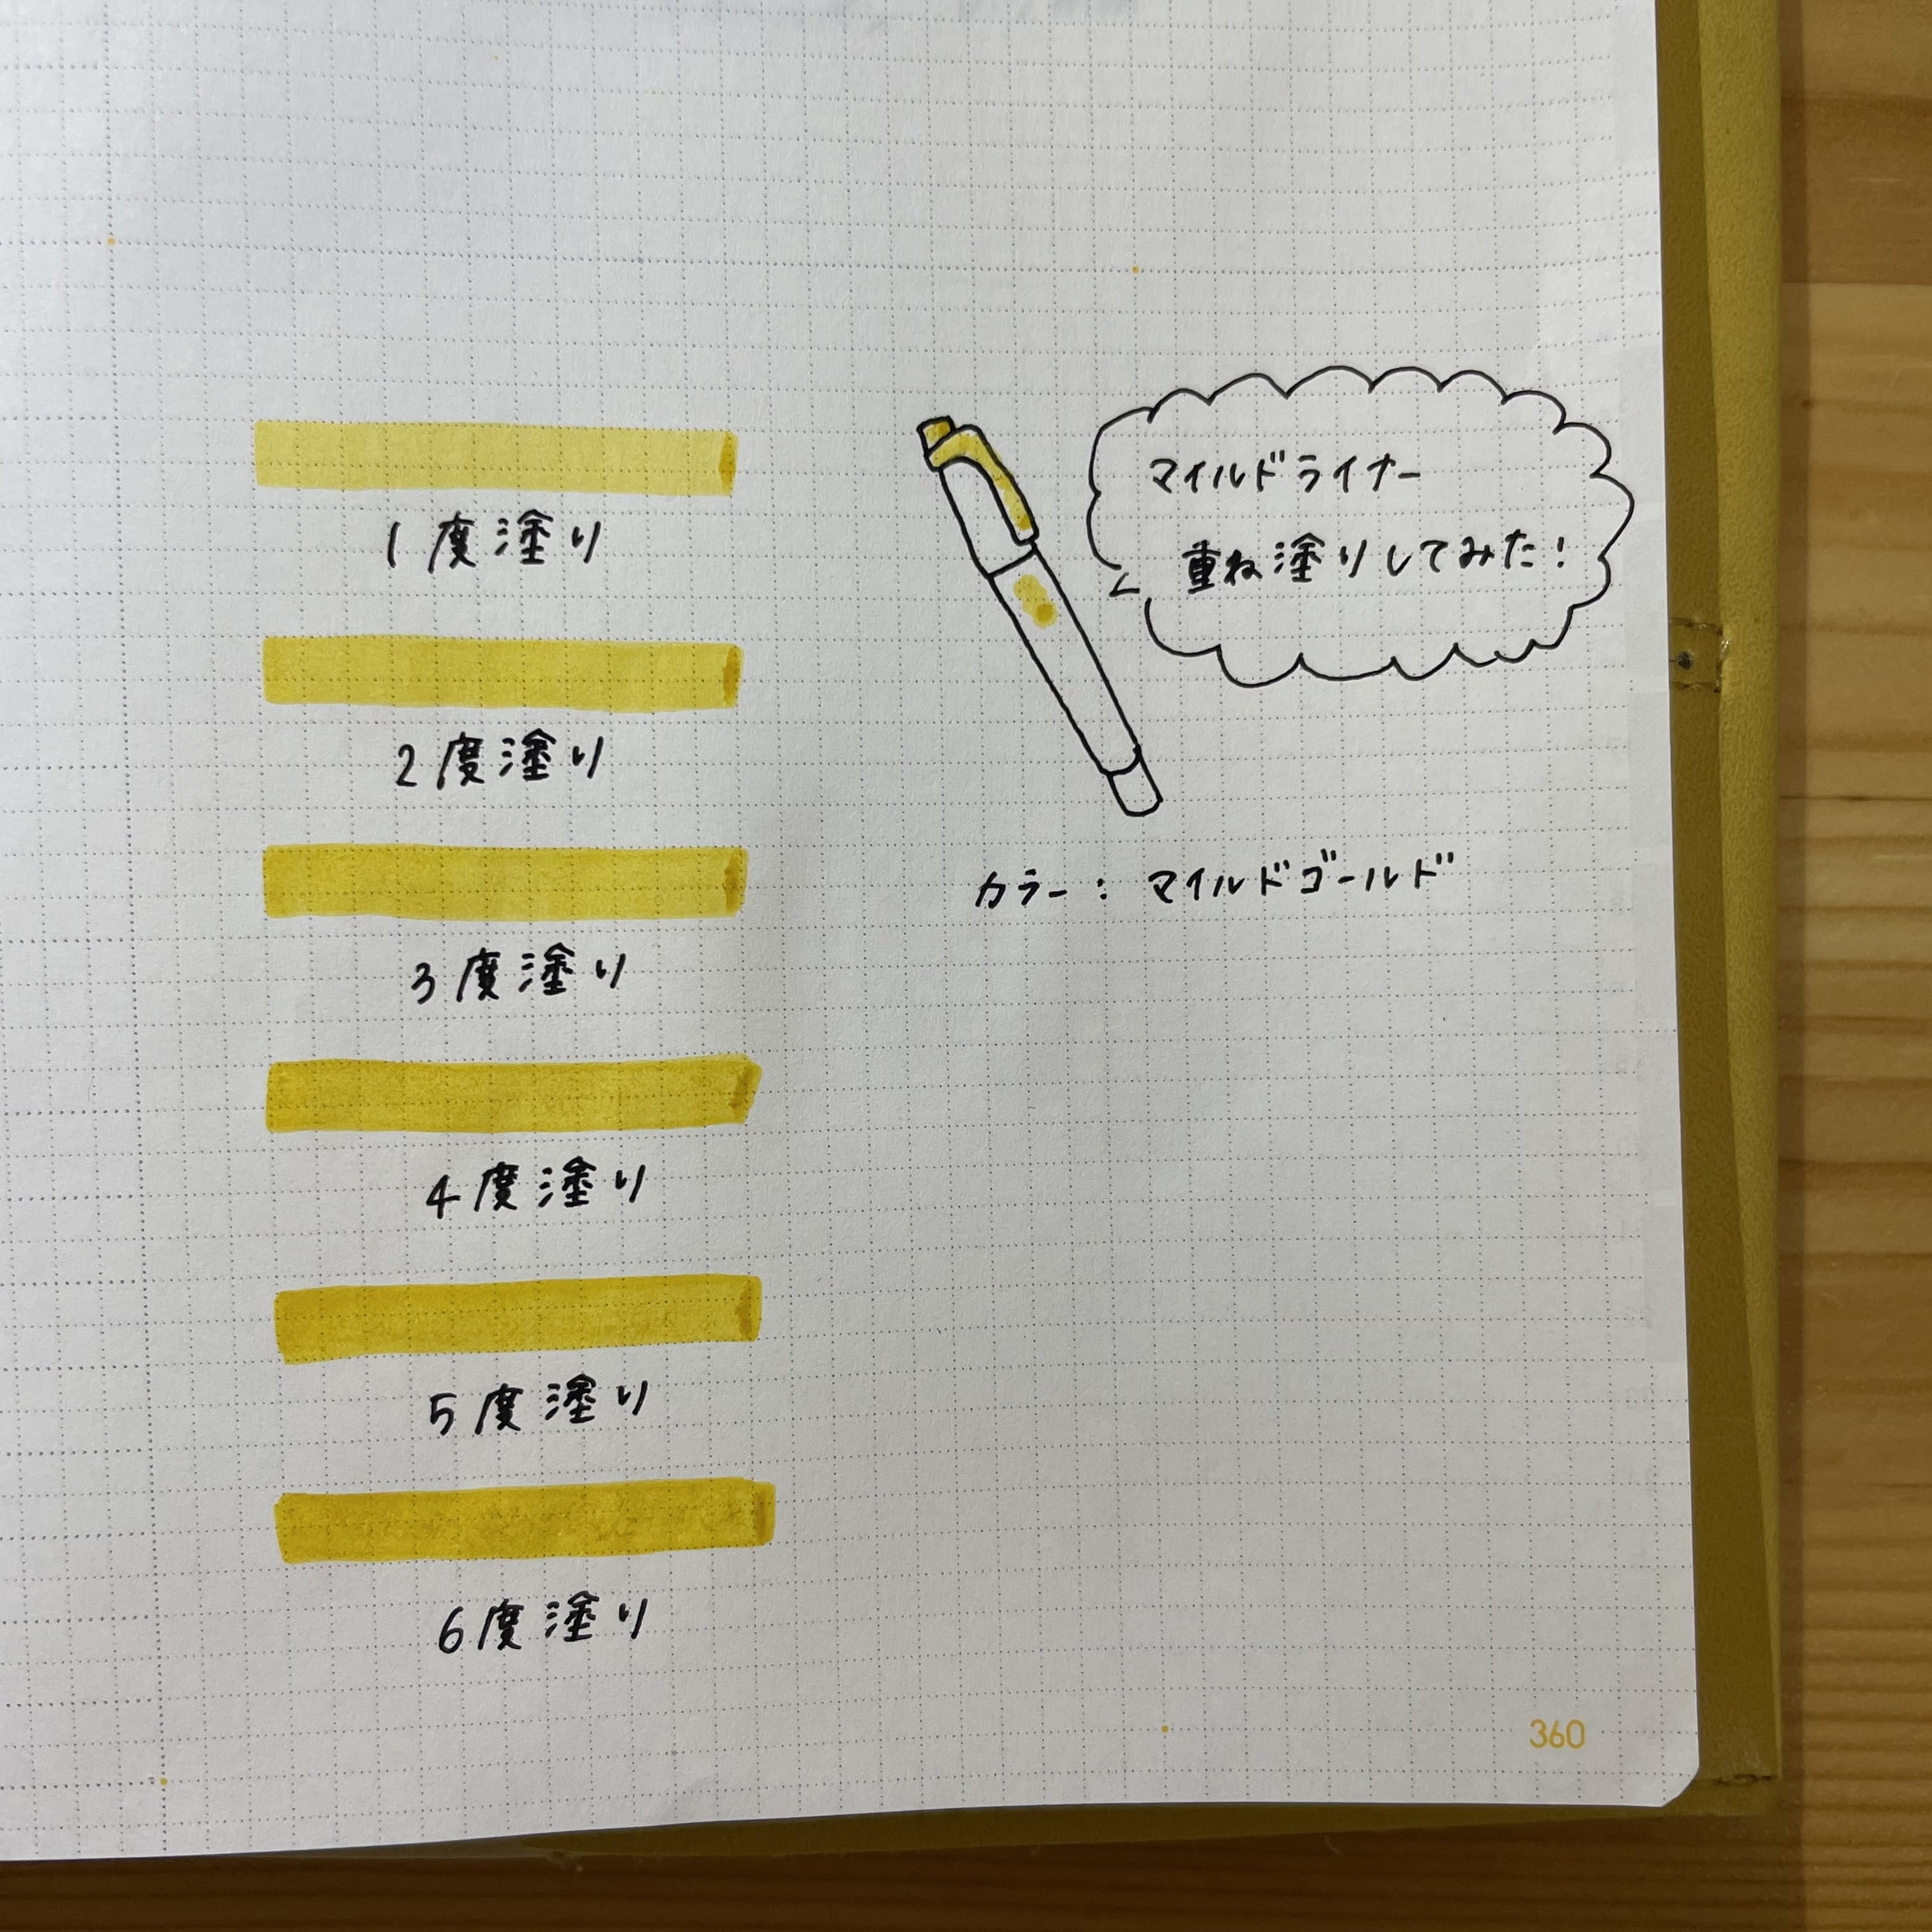 1度塗り
2度塗り
3度塗り
4度塗り
5度塗り
6度塗り
マイルドライナー
重ね塗りしてみた!
カラー: マイルドゴールド
360